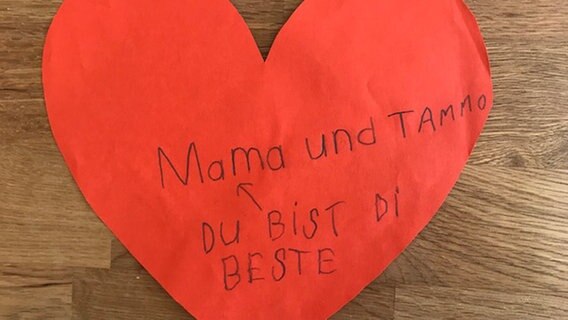 Mama und TAMMO
DU BiST Di
BESTE